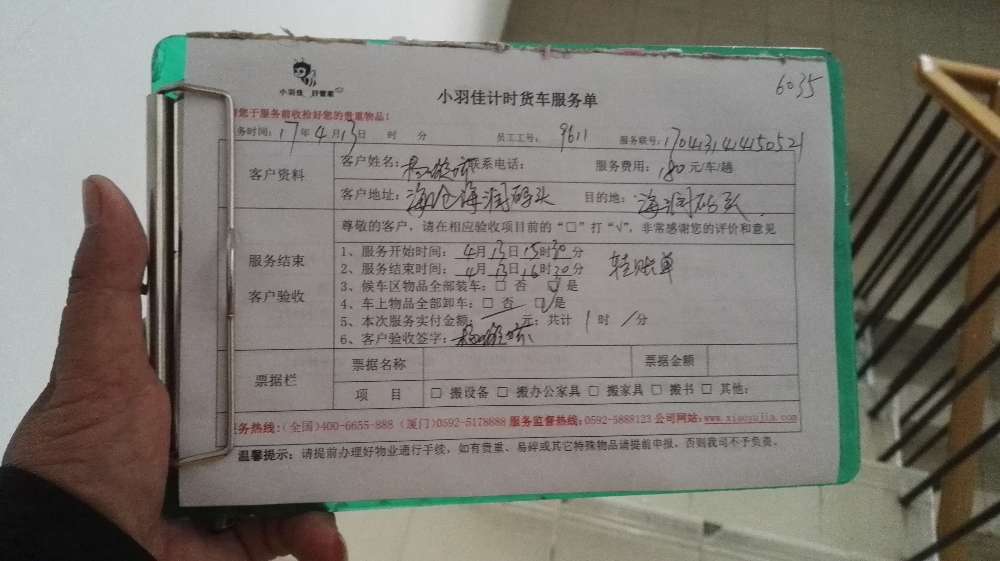 6035
小羽佳 好管家
小羽佳计时货车服务单
您于服务前收拾好您的贵重物品!
务时间: 17年4月13日 时 分 员工工号: 9611 服务联号: 170413141450521
客户资料
客户姓名: 联系电话: 服务费用: 180元/车/趟
客户地址: 海沧海润码头 目的地: 海润码头
尊敬的客户,请在相应验收项目前的“□”打“√”,非常感谢您的评价和意见
服务结束
客户验收
1、服务开始时间: 4月13日15时30分
转账单
2、服务结束时间: 4月13日16时30分
3、候车区物品全部装车: □ 否 □ 是
4、车上物品全部卸车: □ 否 □ 是
5、本次服务实付金额: 元; 共计 1时 /分
6、客户验收签字:
票据栏
票据名称 票据金额
项 目 □ 搬设备 □ 搬办公家具 □ 搬家具 □ 搬书 □ 其他:
务热线:(全国)400-6655-888 (厦门)0592-5178888 服务监督热线:0592-5888123 公司网站: www.xiaoyujia.com
温馨提示: 请提前办理好物业通行手续, 如有贵重、易碎或其它特殊物品请提前申报, 否则我司不予负责。